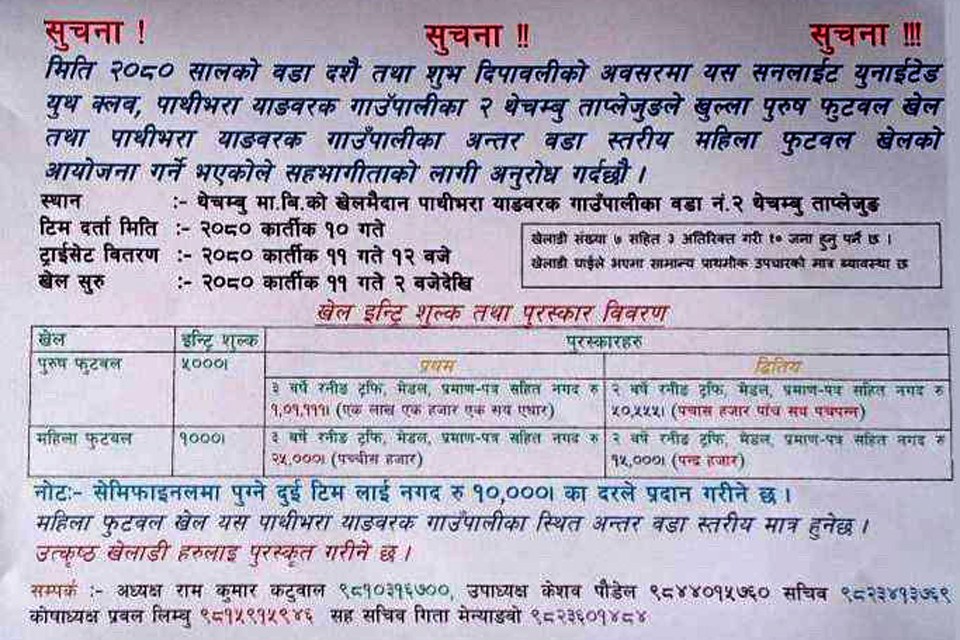 सुचना ! सुचना !! सुचना !!!
मिति २०८० सालको वडा दशै तथा शुभ दिपावलीको अवसरमा यस सनलाईट युनाईटेड
युथ क्लव, पाथीभरा याङवरक गाउँपालीका २ थेचम्बु ताप्लेजुङले खुल्ला पुरुष फुटवल खेल
तथा पाथीभरा याङवरक गाउँपालीका अन्तर वडा स्तरीय महिला फुटवल खेलको
आयोजना गर्ने भएकोले सहभागीताको लागी अनुरोध गर्दछौ ।
स्थान :- थेचम्बु मा.बि.को खेलमैदान पाथीभरा याङवरक गाउँपालीका वडा नं.२ थेचम्बु ताप्लेजुङ
टिम दर्ता मिति :- २०८० कार्तीक १० गते
ट्राईसेट वितरण :- २०८० कार्तीक ११ गते १२ बजे
खेल सुरु :- २०८० कार्तीक ११ गते २ बजेदेखि
खेलाडी संख्या ७ सहित ३ अतिरिक्त गरी १० जना हुनु पर्ने छ ।
खेलाडी घाईते भएमा सामान्य प्राथमीक उपचारको मात्र ब्यावस्था छ
खेल इन्ट्रि शुल्क तथा पुरस्कार विवरण
खेल इन्ट्रि शुल्क पुरस्कारहरु
पुरुष फुटवल ५०००। प्रथम द्वितिय
३ वर्षे रनीङ ट्रफि, मेडल, प्रमाण-पत्र सहित नगद रु
१,०१,१११। (एक लाख एक हजार एक सय एघार)
२ वर्षे रनीङ ट्रफि, मेडल, प्रमाण-पत्र सहित नगद रु
५०,५५५। (पचास हजार पांच सय पचपन्न)
महिला फुटवल १०००।
३ वर्षे रनीङ ट्रफि, मेडल, प्रमाण-पत्र सहित नगद रु
२५,०००। (पच्चीस हजार)
२ वर्षे रनीङ ट्रफि, मेडल, प्रमाण-पत्र सहित नगद रु
१५,०००। (पन्द्र हजार)
नोट:- सेमिफाइनलमा पुग्ने दुई टिम लाई नगद रु १०,०००। का दरले प्रदान गरीने छ ।
महिला फुटवल खेल यस पाथीभरा याङवरक गाउँपालीका स्थित अन्तर वडा स्तरीय मात्र हुनेछ ।
उत्कृष्ठ खेलाडी हरुलाइ पुरस्कृत गरीने छ ।
सम्पर्क :- अध्यक्ष राम कुमार कटुवाल ९८१०३१६७००, उपाध्यक्ष केशव पौडेल ९८४४०१५७६० सचिव ९८२३४१३७६९
कोषाध्यक्ष प्रवल लिम्बु ९८१५९१५९४६ सह सचिव गिता मेन्याङवो ९८२३६०१४८४